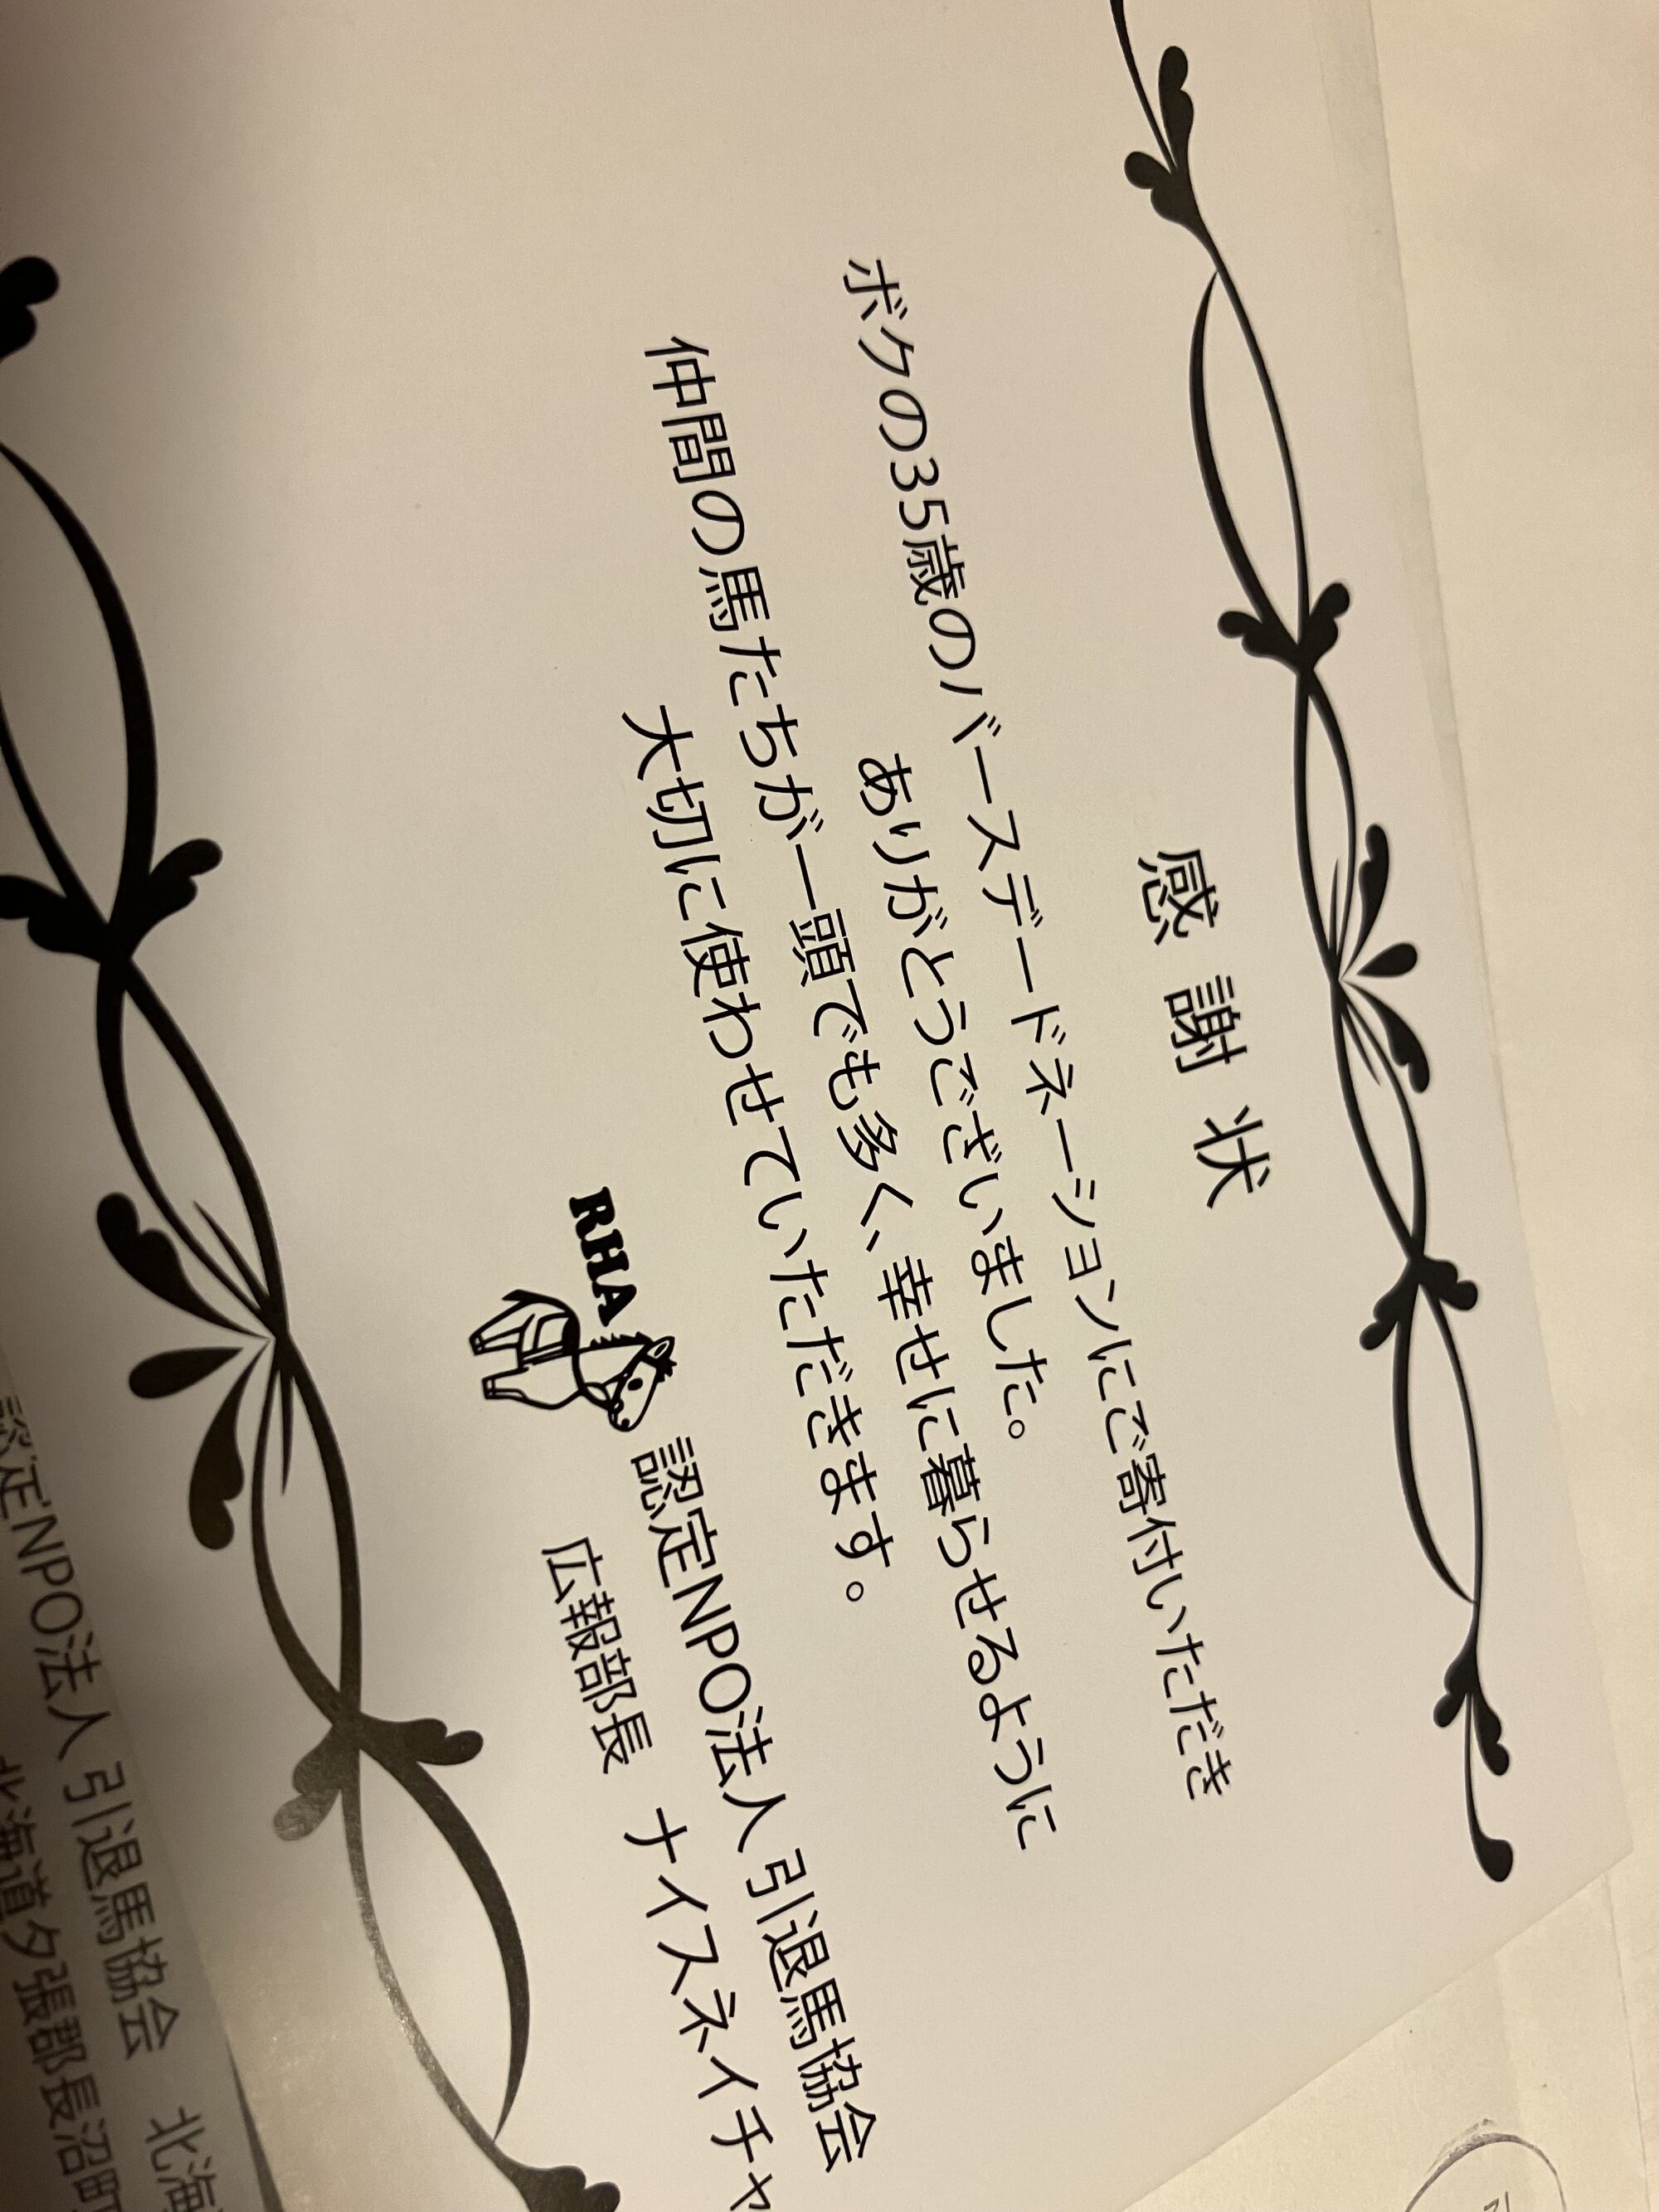 感謝状
ボクの35歳のバースデードネーションにご寄付いただき
ありがとうございました。
仲間の馬たちが一頭でも多く、幸せに暮らせるように
大切に使わせていただきます。
RHA
認定NPO法人 引退馬協会
広報部長 ナイスネイチャ
認定NPO法人 引退馬協会 北海
北海道夕張郡長沼町